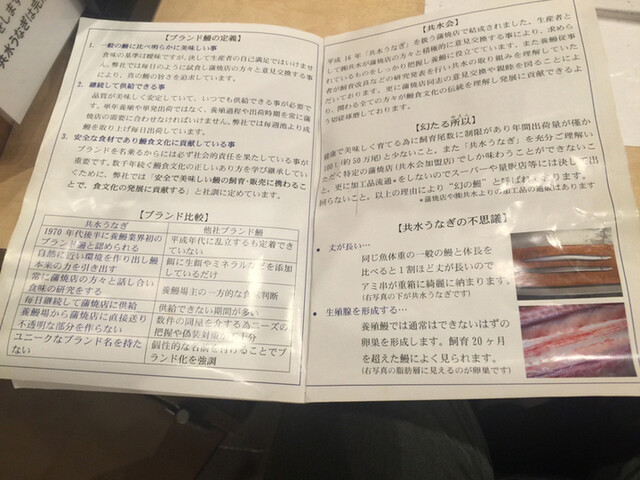 【ブランド鰻の定義】
1. 一般の鰻に比べ明らかに美味しい事
食味の基準は曖昧ですが、決して生産者の自己満足ではいけませ
ん。弊社では毎日のように試食し蒲焼店の方々と意見交換する事
により、真の鰻の旨さを追求しています。
2. 継続して供給できる事
品質が美味しく安定していて、いつでも供給できる事が必要で
す。単年養殖や単発出荷ではなく、養殖過程や出荷時期を常に蒲
焼店の需要に合わせなければいけません。弊社では毎週池より成
鰻を取り上げ毎日出荷しています。
3. 安全な食材であり鰻食文化に貢献している事
ブランドを名乗るからには必ず社会的責任を果たしている事が
重要です。数千年続く鰻食文化の正しいあり方を学び継承してい
くために、弊社では「安全で美味しい鰻の飼育・販売に携わるこ
とで、食文化の発展に貢献する」と社訓に定めています。
【ブランド比較】
共水うなぎ 他社ブランド鰻
1970年代後半に養鰻業界初の 平成年代に乱立するも定着でき
ブランド鰻と認められる ていない
自然に近い環境を作り出し鰻 餌に生薬やミネラルなどを添加
本来の力を引き出す しているだけ
常に蒲焼店の方々と話し合い 養鰻場主の一方的な食味判断
食味の研究をする
毎日継続して蒲焼店に供給 供給できない期間が多い
養鰻場から蒲焼店に直接送り 数件の問屋を介する為ニーズの
不透明な部分を作らない 把握や偽装対策が不十分
ユニークなブランド名を持た 個性的な名前を付けることでブ
ない ランド化を強調
【共水会】
平成16年「共水うなぎ」を扱う蒲焼店で結成されました。生産者と
して㈱共水が蒲焼店の方々と積極的に意見交換する事により、求めら
れているものをしっかり把握し養鰻に役立てています。また養鰻従事
者が飼育改良などの研究発表を行い共水の取り組みを理解していた
だいております。更に蒲焼店同志の意見交換や親睦を図ることによ
り、関わる全ての方々が鰻食文化の伝統を理解し発展に貢献できるよ
う切磋琢磨しております。
【幻たる所以】
健康で美味しく育てる為に飼育尾数に制限があり年間出荷量が僅か
100t(約50万尾)と少ないこと。また「共水うなぎ」を充分ご理解い
ただく特定の蒲焼店(共水会加盟店)でしか味わうことができないこ
と。更に加工品流通*をしないのでスーパーや量販店等には決して出
回らないこと。以上の理由により"幻の鰻"と呼ばれております。
*蒲焼店や㈱共水よりの加工品の通販はあります
【共水うなぎの不思議】
・丈が長い…
同じ魚体重の一般の鰻と体長を
比べると1割ほど丈が長いので
アミ串が重箱に綺麗に納まります。
(右写真の下が共水うなぎです)
・生殖腺を形成する…
養殖鰻では通常はできないはずの
卵巣を形成します。飼育20ヶ月
を超えた鰻によく見られます。
(右写真の脂肪層に見えるのが卵巣です)